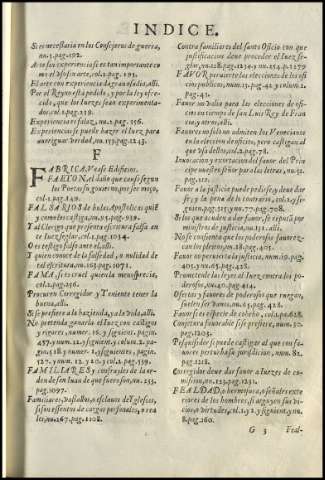 INDICE.
Si es necessaria en los Consejeros de guerra,
nu.3.pag.192.
A todas experiencia si es tan importante co
mo el uso sin arte, col.2.pag.193.
El arte con experiencia da gran deseo, alli.
Por el Rey està pendido, y por la ley ofre-
cido, que los Iuezes sean experimenta-
dos, col.1.pag.119.
Experiencia es falaz, nu.2.pag.156.
Experiencia se puede hazer el Iuez para
averiguar verdad, nu.153.pag.1243.
F
FABRICA, Vease Edificios.
FAETON, el daño que causò segun
los Poetas su govierno, por ser moço,
col.2.pag.149.
FALSARIOS de bulas Apostolicas, quiẽ
y como les castiga, nu.93.pag.939.
Y al Clerigo que presenta escritura falsa an-
te Iuez seglar, col.1.pag.1034.
O es testigo falso ante el, alli.
Y quien conoce de la falsedad, o nulidad de
tal escritura, nu.163.pag.1071.
FAMA, es cruel que ta la menosprecia,
col.2.pag.256.
Procuren Corregidor y Teniente tener la
buena, alli.
Si se prefiere a la hazienda, y a la vida, alli.
No pretenda ganarla el Iuez con castigos
y rigores, numer.16. y siguient. pagin.
457. y num.12. y siguient. y colum.2. pa-
gin.518. y numer.1. y siguientes, pagin.
527. y num.12. y 20. y col.2. pag.559.
FAMILIARES y confrades de la or-
den de san Iuan de que fuero son, nu.255.
pag.1097.
Familiares, vassallos, o esclavos de Yglesias,
si son esentos de cargas personales, o rea
les, nu.267.pag.1108.
Contra familiares del santo Oficio con que
justificacion deve proceder el Iuez se-
glar, nu.128.pag.1234. y nu.254.p.1279
FAVOR para ante las elecciones de los ofi
cios publicos, num.13.pag.42. y colum.2.
pag.41.
Favor no valia para las elecciones de ofi-
cios en tiempo de san Luis Rey de Fran
cia y otros, alli.
Favores no solo no admiten los Venecianos
en la eleccion de oficios, pero castigan al
que dellos usa, col.2.pag.78.
Invocacion y exortacion del favor del Prin
cipe nuestro señor para las letras, nu.32.
pag.125.
Favor a la justicia puede pedirse, y deve dar
se, y la pena de lo contrario, col.2. y siguie
tes, pag.325. y nu.77. pag.708.
Si los que acuden a dar favor, se escusa por
ministros de justicia, nu.151. alli.
No se consienta que los poderosos favorez-
can los pleytos, nu.28. pag.427.
Favor no pervierta la justicia, num.19.pag.
405. y nu.65.pag.425.
Prometenle las leyes al Iuez contra los po-
derosos, nu.40.pag.414.
Ofertas y favores de poderosos que ruegan,
suelen ser vanos, nu.65.pag.426.
Favor si es especie de cohecho, col.1.p.628.
Conjetura favorable si se prefiere, num.50.
pag.1203.
Pesquisidor si puede castigar al que con fa-
vores perturba su jurisdicion, num.82.
pag.1218.
Corregidor deve dar favor a Iuezes de co-
mission, nu.123.pag.1231.
FEALDAD, o hermosura, o señales exte
riores de los hombres, si arguyen sus vi-
cios, o virtudes, col.1. y 2. y siguient. y nu.
8.pag.260.
G 3
Feal-